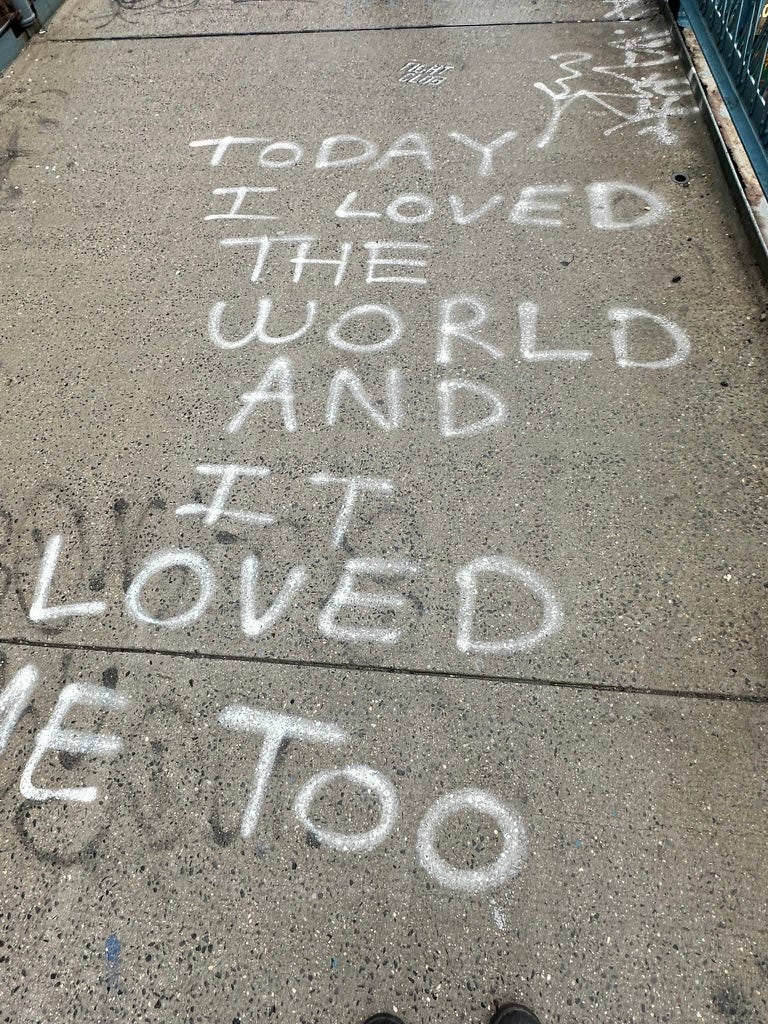 TODAY
I LOVED
THE
WORLD
AND
IT
LOVED
ME TOO